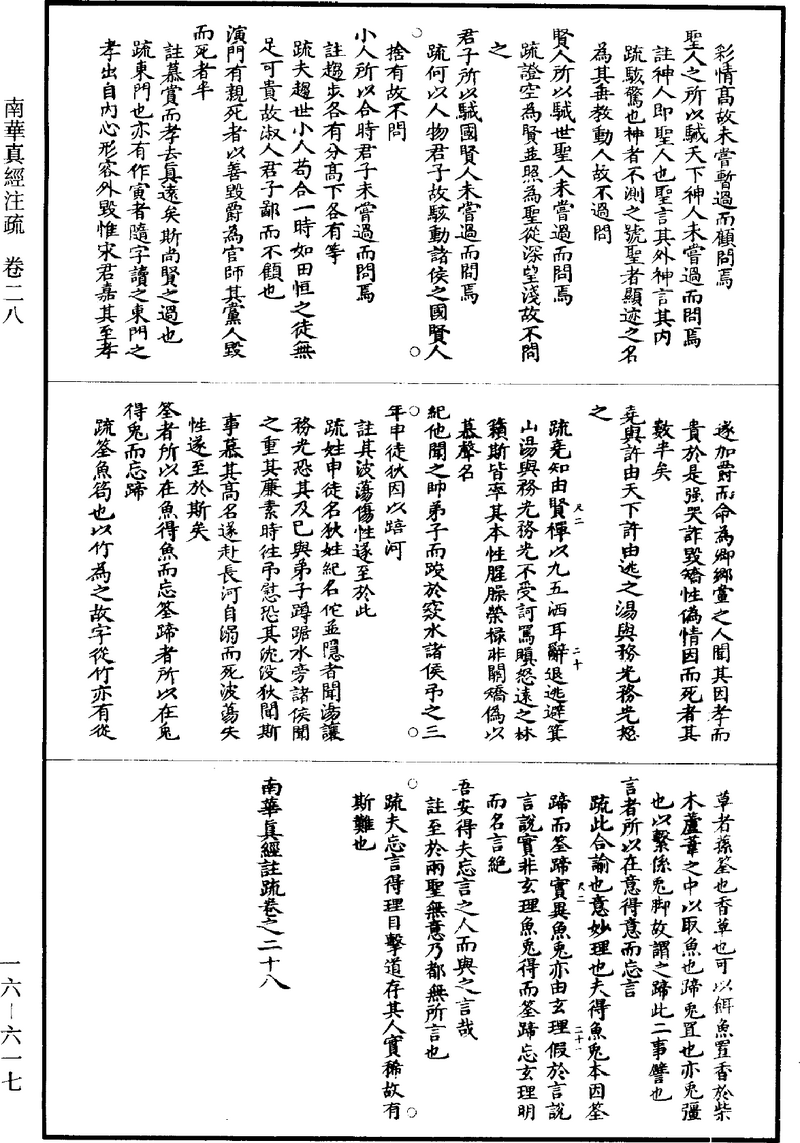 南華真經注疏　卷二八
彩情高故未嘗暫過而顧問焉
聖人之所以駴天下神人未嘗過而問焉
註神人即聖人也聖言其外神言其内
疏駭驚也神者不測之號聖者顯迹之名
為其垂教動人故不過問
賢人所以駴世聖人未嘗過而問焉
疏證空為賢並照為聖從深望淺故不問
之
君子所以駴國賢人未嘗過而問焉
疏何以人物君子故駭動諸侯之國賢人
捨有故不問
小人所以合時君子未嘗過而問焉
註趨步各有分高下各有等
疏夫趨世小人苟合一時如田恒之徒無
足可貴故淑人君子鄙而不顧也
演門有親死者以善毀爵為官師其黨人毀
而死者半
註慕賞而孝去真遠矣斯尚賢之過也
疏東門也亦有作寅者隨字讀之東門之
孝出自内心形容外毀惟宋君嘉其至孝
遂加爵而命為卿鄉黨之人聞其因孝而
貴於是强哭詐毀矯性偽情因而死者其
數半矣
堯與許由天下許由逃之湯與務光務光怒
之
疏堯知由賢禪以九五洒耳辭退逃避箕
山湯與務光務光不受訶罵瞋怒遠之林
籟斯皆率其本性腥臊榮祿非關矯偽以
慕聲名
紀他聞之帥弟子而踆於窾水諸侯弔之三
年申徒狄因以踣河
註其波蕩傷性遂至於此
疏姓申徒名狄姓紀名佗並隱者聞湯讓
務光恐其及己與弟子蹲踞水旁諸侯聞
之重其廉素時往弔慰恐其沈没狄聞斯
事慕其高名遂赴長河自溺而死波蕩失
性遂至於斯矣
筌者所以在魚得魚而忘筌蹄者所以在兎
得兎而忘蹄
疏筌魚笱也以竹為之故字從竹亦有從
草者蓀筌也香草也可以餌魚置香於柴
木蘆葦之中以取魚也蹄兎罝也亦兎彊
也以繫係兎脚故謂之蹄此二事譬也
言者所以在意得意而忘言
疏此合諭也意妙理也夫得魚兎本因筌
蹄而筌蹄實異魚兎亦由玄理假於言說
言說實非玄理魚兎得而筌蹄忘玄理明
而名言絶
吾安得夫忘言之人而與之言哉
註至於兩聖無意乃都無所言也
疏夫忘言得理目擊道存其人實稀故有
斯難也
南華真經註疏卷之二十八
一六—六一七